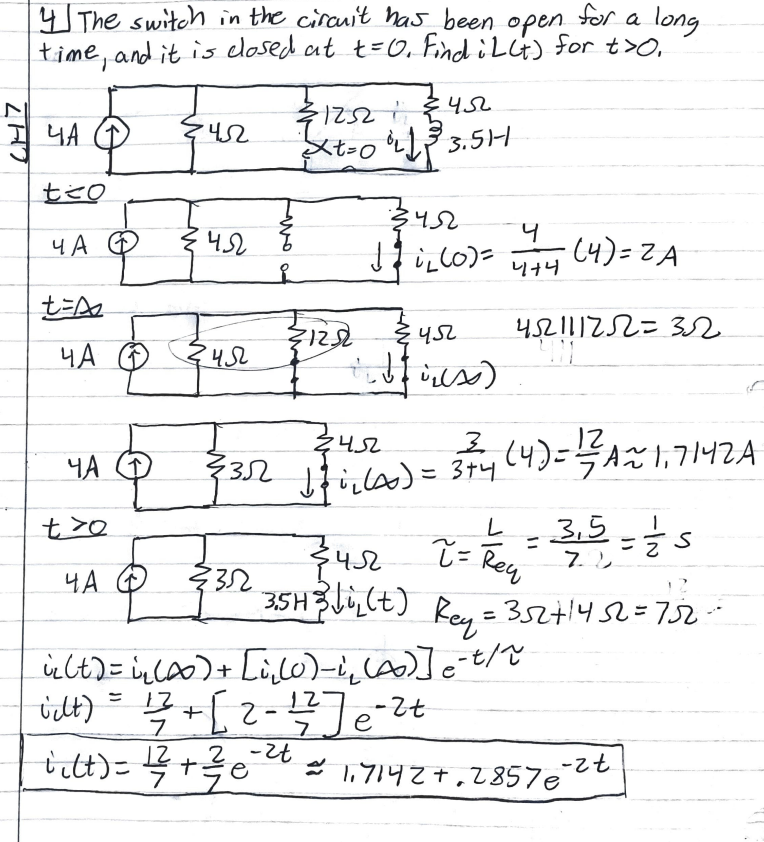 4] The switch in the circuit has been open for a long
time, and it is closed at t=0. Find iL(t) for t>0.
CH7
4A 4Ω 12Ω t=0 iL 4Ω 3.5H
t<0
4A 4Ω 4Ω iL(0)= 4/(4+4) (4)=2A
t=∞
4A 4Ω 12Ω 4Ω iL(∞) 4Ω||12Ω=3Ω
4A 3Ω 4Ω iL(∞) = 3/(3+4) (4)= 12/7 A≈1.7142A
t>0
4A 3Ω 4Ω 3.5H iL(t) τ= L/Req = 3.5/7 = 1/2 s
Req = 3Ω+4Ω=7Ω
iL(t)=iL(∞)+[iL(0)-iL(∞)]e^-t/τ
iL(t) = 12/7 +[2-12/7]e^-2t
iL(t)= 12/7 + 2/7 e^-2t ≈ 1.7142+.2857e^-2t